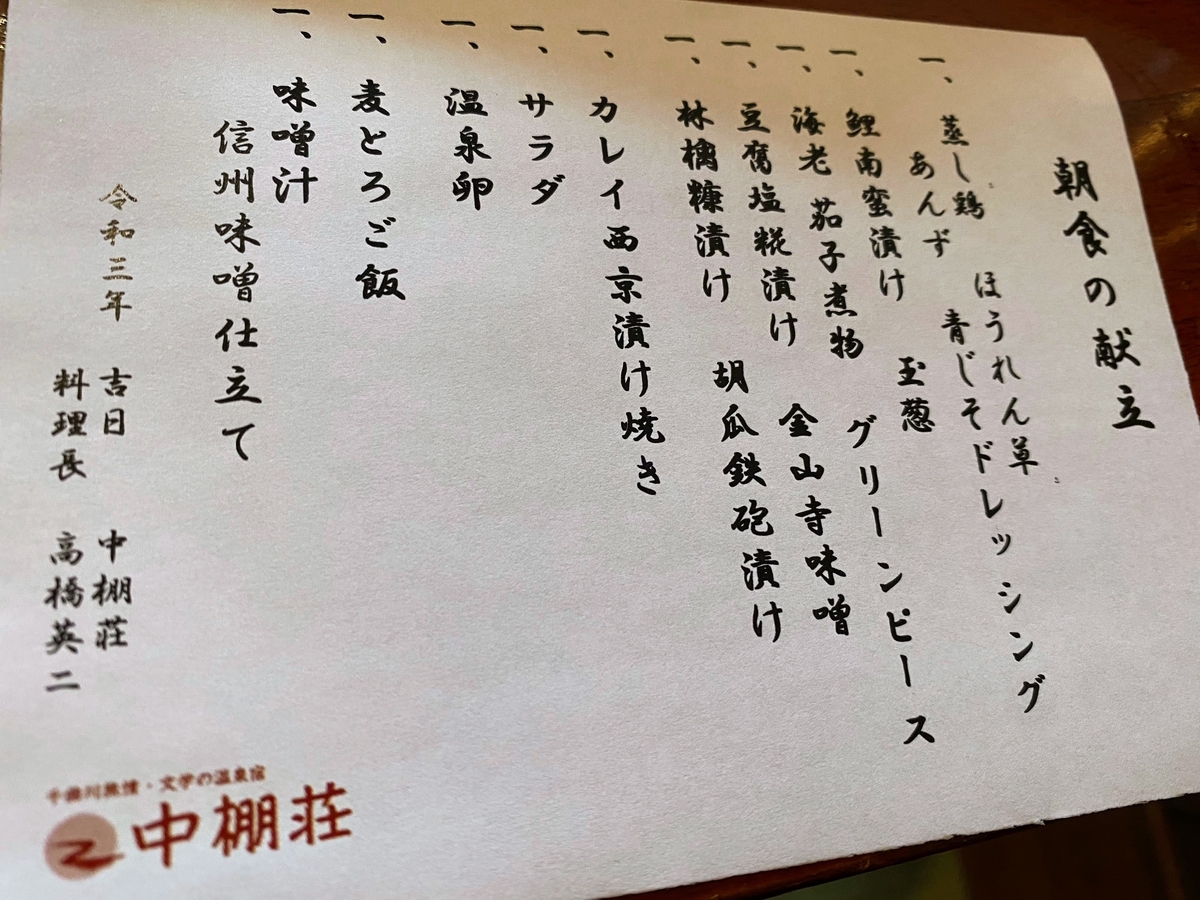 朝食の献立
一、蒸し鶏 ほうれん草
あんず 青じそドレッシング
一、鯉南蛮漬け 玉葱
一、海老 茄子煮物 グリーンピース
一、豆腐塩糀漬け 金山寺味噌
一、林檎糠漬け 胡瓜鉄砲漬け
一、カレイ西京漬け焼き
一、サラダ
一、温泉卵
一、麦とろご飯
一、味噌汁
信州味噌仕立て
令和三年 吉日 中棚荘
料理長 高橋英二
千曲川旅情・文学の温泉宿
中棚荘